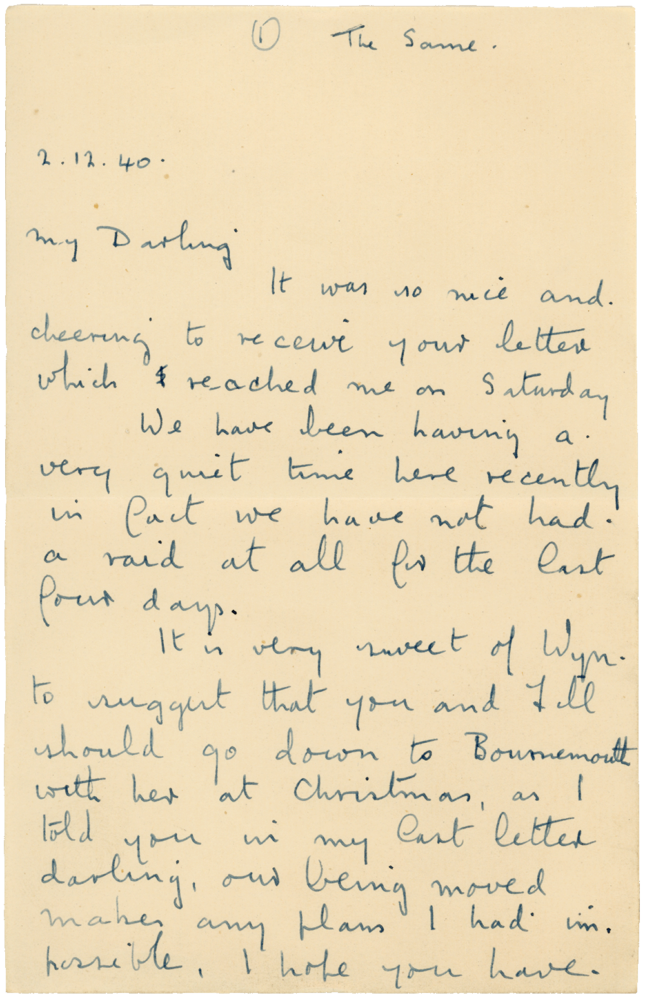 ① The Same.
2.12.40.
My Darling
It was so nice and.
cheering to receive your letter
which reached me on Saturday
We have been having a.
very quiet time here recently
in fact we have not had.
a raid at all for the last
four days.
It is very sweet of Wyn.
to suggest that you and Jill
should go down to Bournemouth
with her at Christmas, as I
told you in my last letter
darling, our being moved
makes any plans I had im.
possible, I hope you have.